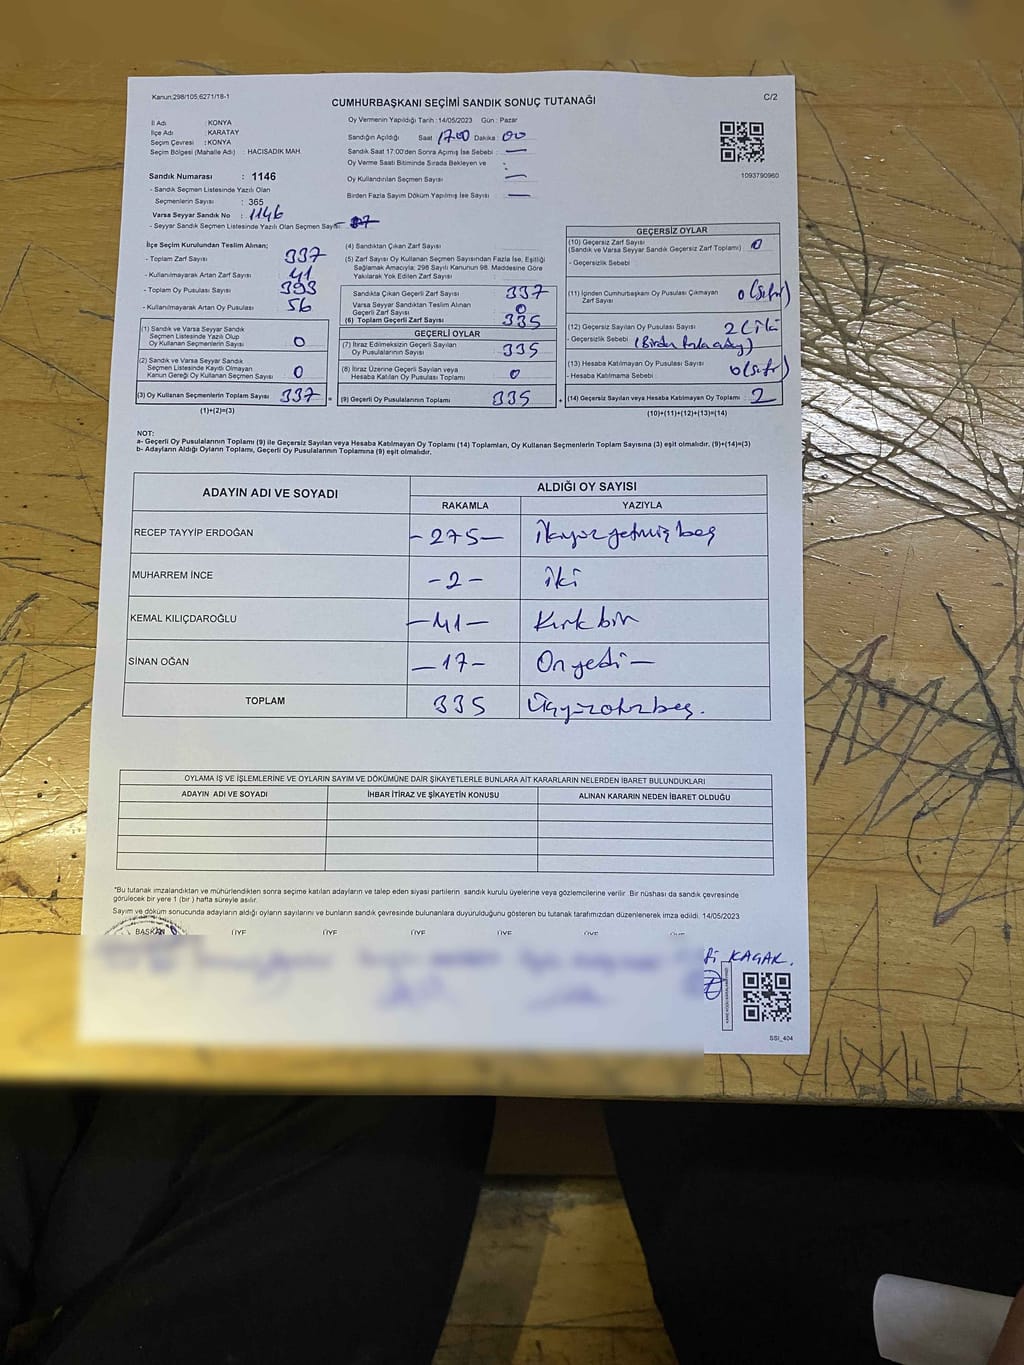 Kanun:298/105;6271/18-1
C/2
CUMHURBAŞKANI SEÇİMİ SANDIK SONUÇ TUTANAĞI
İl Adı : KONYA
İlçe Adı : KARATAY
Seçim Çevresi : KONYA
Seçim Bölgesi (Mahalle Adı) : HACISADIK MAH.
Oy Vermenin Yapıldığı Tarih :14/05/2023 Gün : Pazar
Sandığın Açıldığı Saat : 17:00 Dakika : 00
Sandık Saat 17:00'den Sonra Açımış İse Sebebi : —
Oy Verme Saati Bitiminde Sırada Bekleyen ve :
Oy Kullandırılan Seçmen Sayısı : —
Birden Fazla Sayım Döküm Yapılmış İse Sayısı : —
1093790960
Sandık Numarası : 1146
- Sandık Seçmen Listesinde Yazılı Olan
Seçmenlerin Sayısı : 365
Varsa Seyyar Sandık No : 1146
- Seyyar Sandık Seçmen Listesinde Yazılı Olan Seçmen Sayısı
İlçe Seçim Kurulundan Teslim Alınan;
- Toplam Zarf Sayısı 337
- Kullanılmayarak Artan Zarf Sayısı 41
- Toplam Oy Pusulası Sayısı 393
- Kullanılmayarak Artan Oy Pusulası 56
(1) Sandık ve Varsa Seyyar Sandık
Seçmen Listesinde Yazılı Olup
Oy Kullanan Seçmenlerin Sayısı 0
(2) Sandık ve Varsa Seyyar Sandık
Seçmen Listesinde Kayıtlı Olmayan
Kanun Gereği Oy Kullanan Seçmen Sayısı 0
(3) Oy Kullanan Seçmenlerin Toplam Sayısı 337 =
(1)+(2)=(3)
(4) Sandıktan Çıkan Zarf Sayısı
(5) Zarf Sayısı Oy Kullanan Seçmen Sayısından Fazla İse, Eşitliği
Sağlamak Amacıyla; 298 Sayılı Kanunun 98. Maddesine Göre
Yakılarak Yok Edilen Zarf Sayısı
Sandıkta Çıkan Geçerli Zarf Sayısı 337
Varsa Seyyar Sandıktan Teslim Alınan
Geçerli Zarf Sayısı 0
(6) Toplam Geçerli Zarf Sayısı 335
GEÇERLİ OYLAR
(7) İtiraz Edilmeksizin Geçerli Sayılan
Oy Pusulalarının Sayısı 335
(8) İtiraz Üzerine Geçerli Sayılan veya
Hesaba Katılan Oy Pusulası Toplamı 0
(9) Geçerli Oy Pusulalarının Toplamı 335 +
GEÇERSİZ OYLAR
(10) Geçersiz Zarf Sayısı 0
(Sandık ve Varsa Seyyar Sandık Geçersiz Zarf Toplamı)
- Geçersizlik Sebebi :
(11) İçinden Cumhurbaşkanı Oy Pusulası Çıkmayan
Zarf Sayısı 0 (Sıfır)
(12) Geçersiz Sayılan Oy Pusulası Sayısı 2 (iki
- Geçersizlik Sebebi : (Birden fazla oy)
(13) Hesaba Katılmayan Oy Pusulası Sayısı 0 (Sıfır)
- Hesaba Katılmama Sebebi :
(14) Geçersiz Sayılan veya Hesaba Katılmayan Oy Toplamı : 2
(10)+(11)+(12)+(13)=(14)
NOT:
a- Geçerli Oy Pusulalarının Toplamı (9) ile Geçersiz Sayılan veya Hesaba Katılmayan Oy Toplamı (14) Toplamları, Oy Kullanan Seçmenlerin Toplam Sayısına (3) eşit olmalıdır. (9)+(14)=(3)
b- Adayların Aldığı Oyların Toplamı, Geçerli Oy Pusulalarının Toplamına (9) eşit olmalıdır.
ADAYIN ADI VE SOYADI ALDIĞI OY SAYISI
RAKAMLA YAZIYLA
RECEP TAYYİP ERDOĞAN -275- İkiyüzyetmişbeş
MUHARREM İNCE -2- iki
KEMAL KILIÇDAROĞLU -41- Kırkbir
SİNAN OĞAN -17- Onyedi-
TOPLAM 335 Üçyüzotuzbeş.
OYLAMA İŞ VE İŞLEMLERİNE VE OYLARIN SAYIM VE DÖKÜMÜNE DAİR ŞİKAYETLERLE BUNLARA AİT KARARLARIN NELERDEN İBARET BULUNDUKLARI
ADAYIN ADI VE SOYADI İHBAR İTİRAZ VE ŞİKAYETİN KONUSU ALINAN KARARIN NEDEN İBARET OLDUĞU
*Bu tutanak imzalandıktan ve mühürlendikten sonra seçime katılan adayların ve talep eden siyasi partilerin sandık kurulu üyelerine veya gözlemcilerine verilir. Bir nüshası da sandık çevresinde
görülecek bir yere 1 (bir ) hafta süreyle asılır.
Sayım ve döküm sonucunda adayların aldığı oyların sayılarını ve bunların sandık çevresinde bulunanlara duyurulduğunu gösteren bu tutanak tarafımızdan düzenlenerek imza edildi. 14/05/2023
BAŞKAN ÜYE ÜYE ÜYE ÜYE ÜYE ÜYE
KAÇAR.
SSI_404